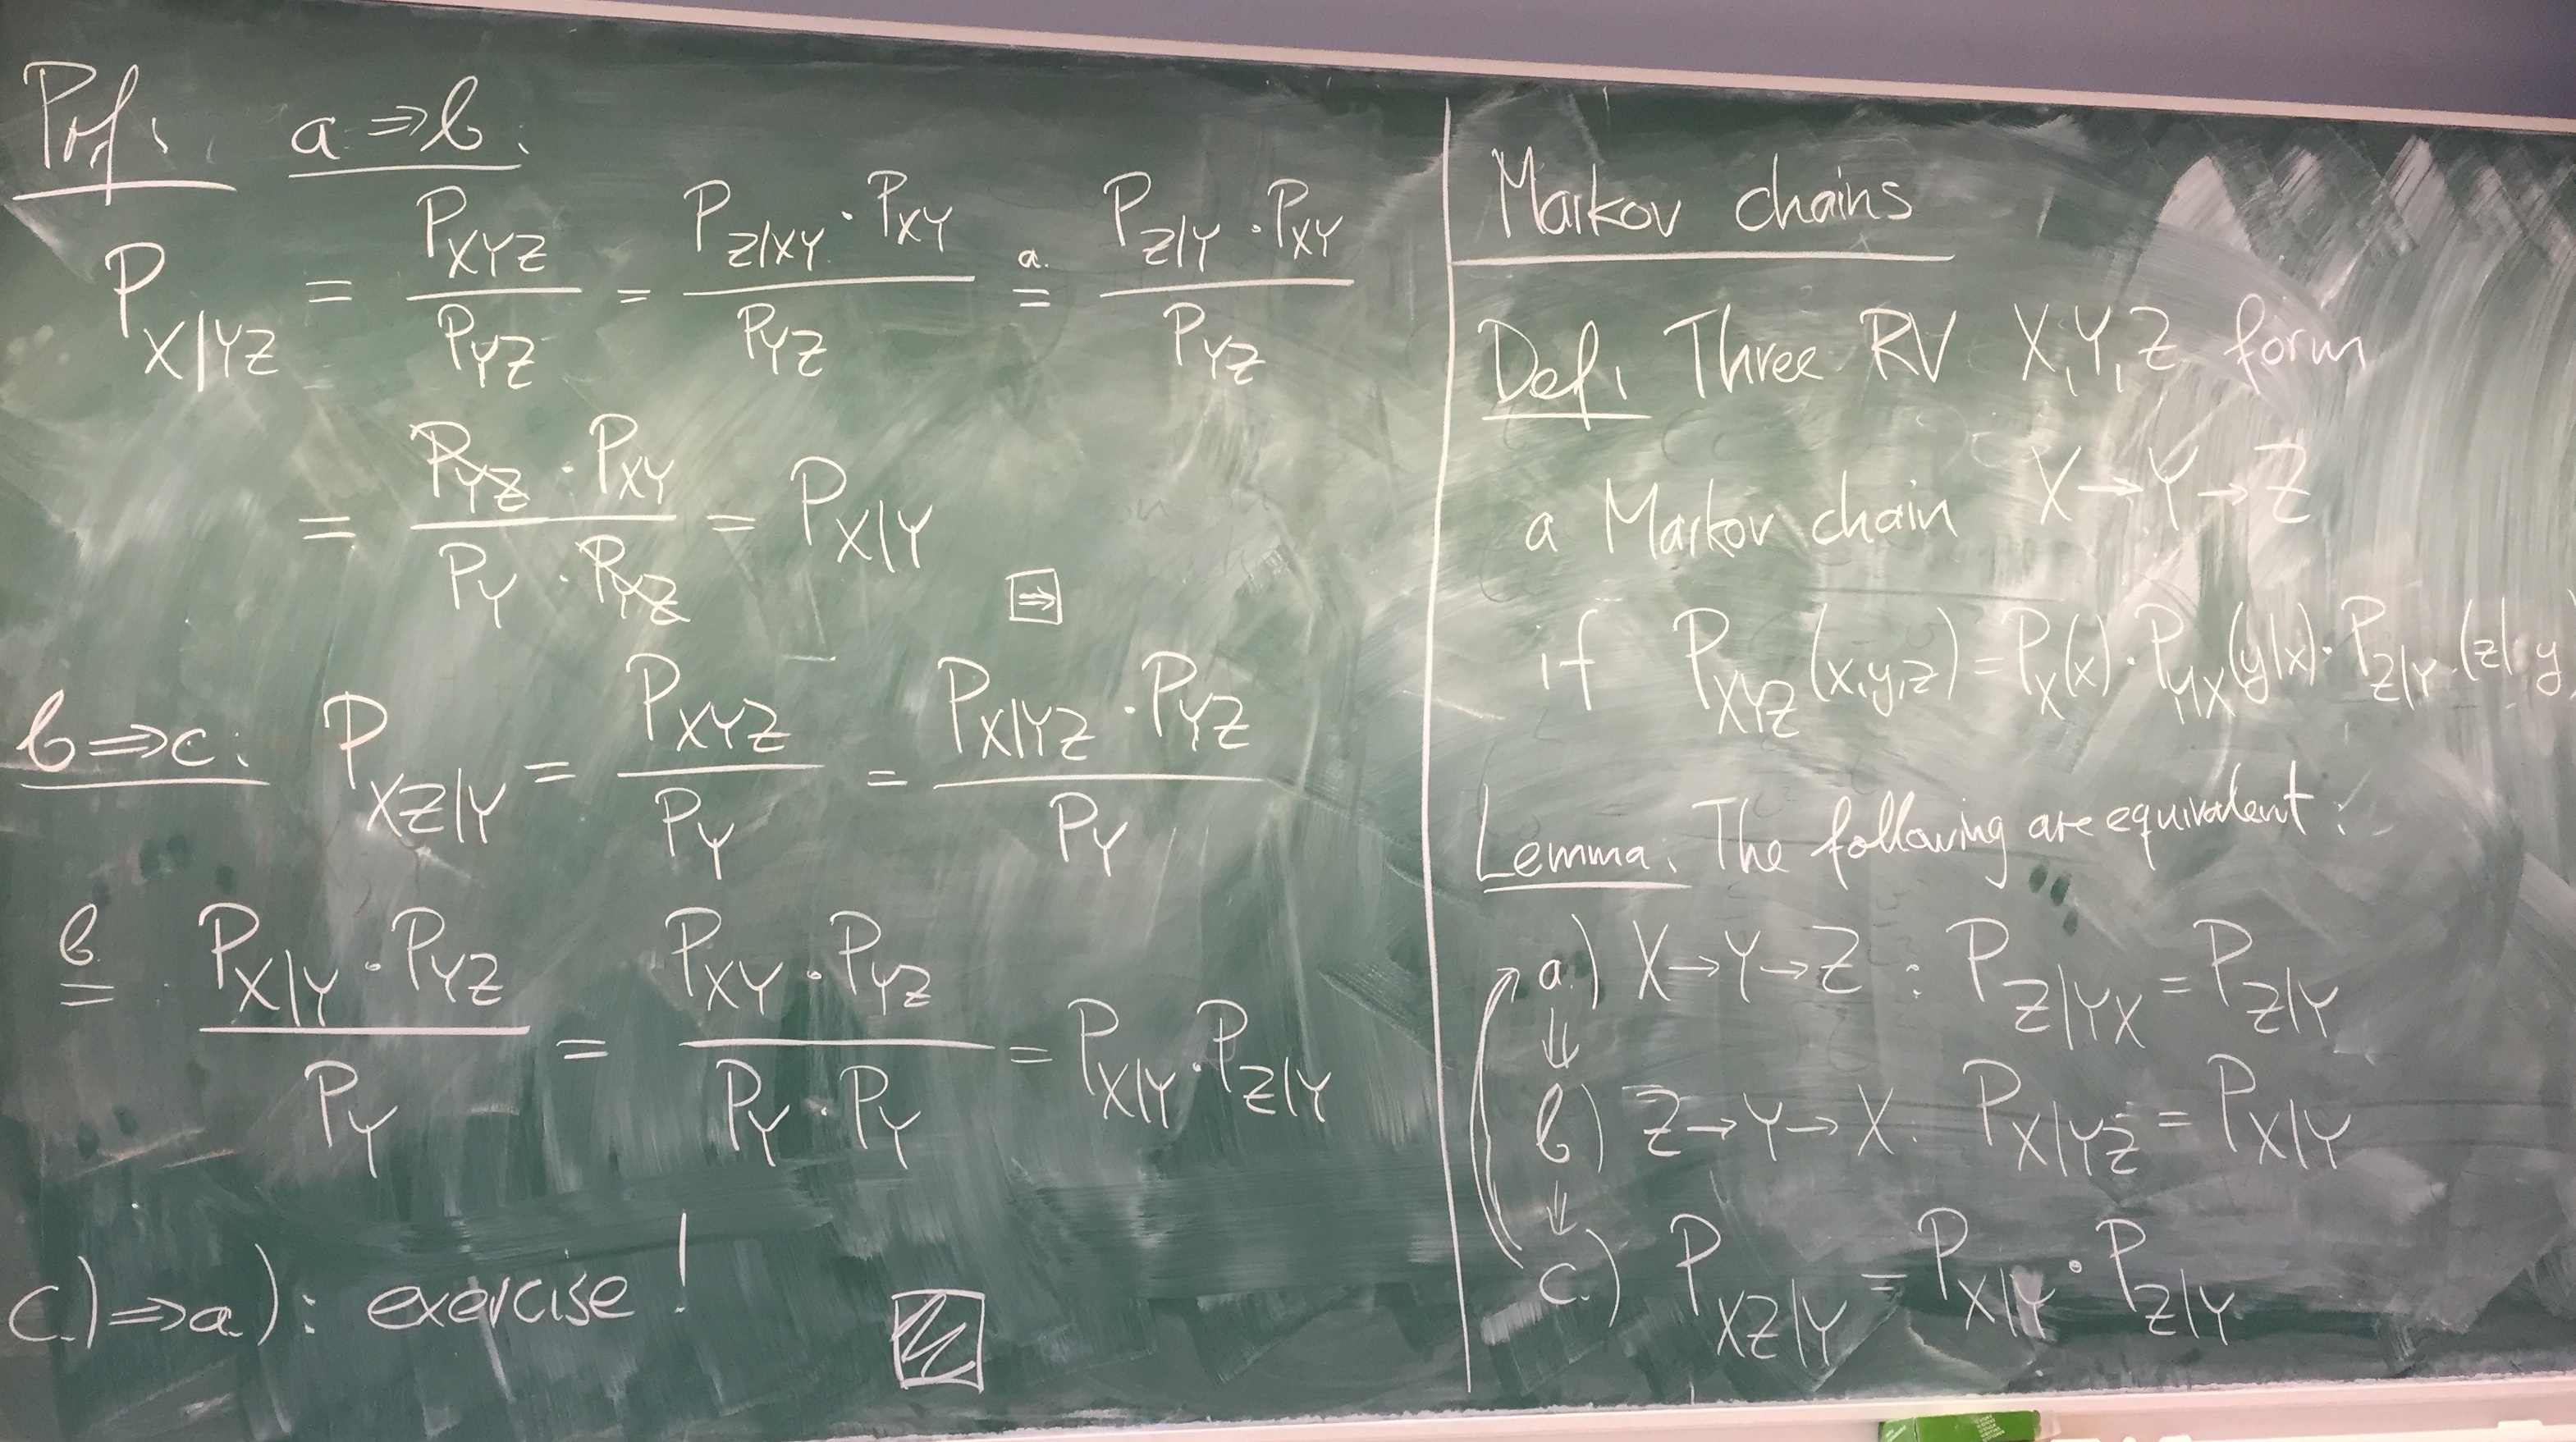 Prf: a ⇒ b:
P_{X|YZ} = P_{XYZ} / P_{YZ} = P_{Z|XY} · P_{XY} / P_{YZ} =^{a.} P_{Z|Y} · P_{XY} / P_{YZ}
= P_{YZ} · P_{XY} / P_Y · P_{YZ} = P_{X|Y}
⇒
b ⇒ c: P_{XZ|Y} = P_{XYZ} / P_Y = P_{X|YZ} · P_{YZ} / P_Y
=^{b.} P_{X|Y} · P_{YZ} / P_Y = P_{XY} · P_{YZ} / P_Y · P_Y = P_{X|Y} · P_{Z|Y}
c.) ⇒ a.): exercise!
Markov chains
Def: Three RV X, Y, Z form
a Markov chain X → Y → Z
if P_{XYZ}(x,y,z) = P_X(x) · P_{Y|X}(y|x) · P_{Z|Y}(z|y)
Lemma: The following are equivalent:
a.) X → Y → Z : P_{Z|YX} = P_{Z|Y}
⇓
b.) Z → Y → X : P_{X|YZ} = P_{X|Y}
⇓
c.) P_{XZ|Y} = P_{X|Y} · P_{Z|Y}